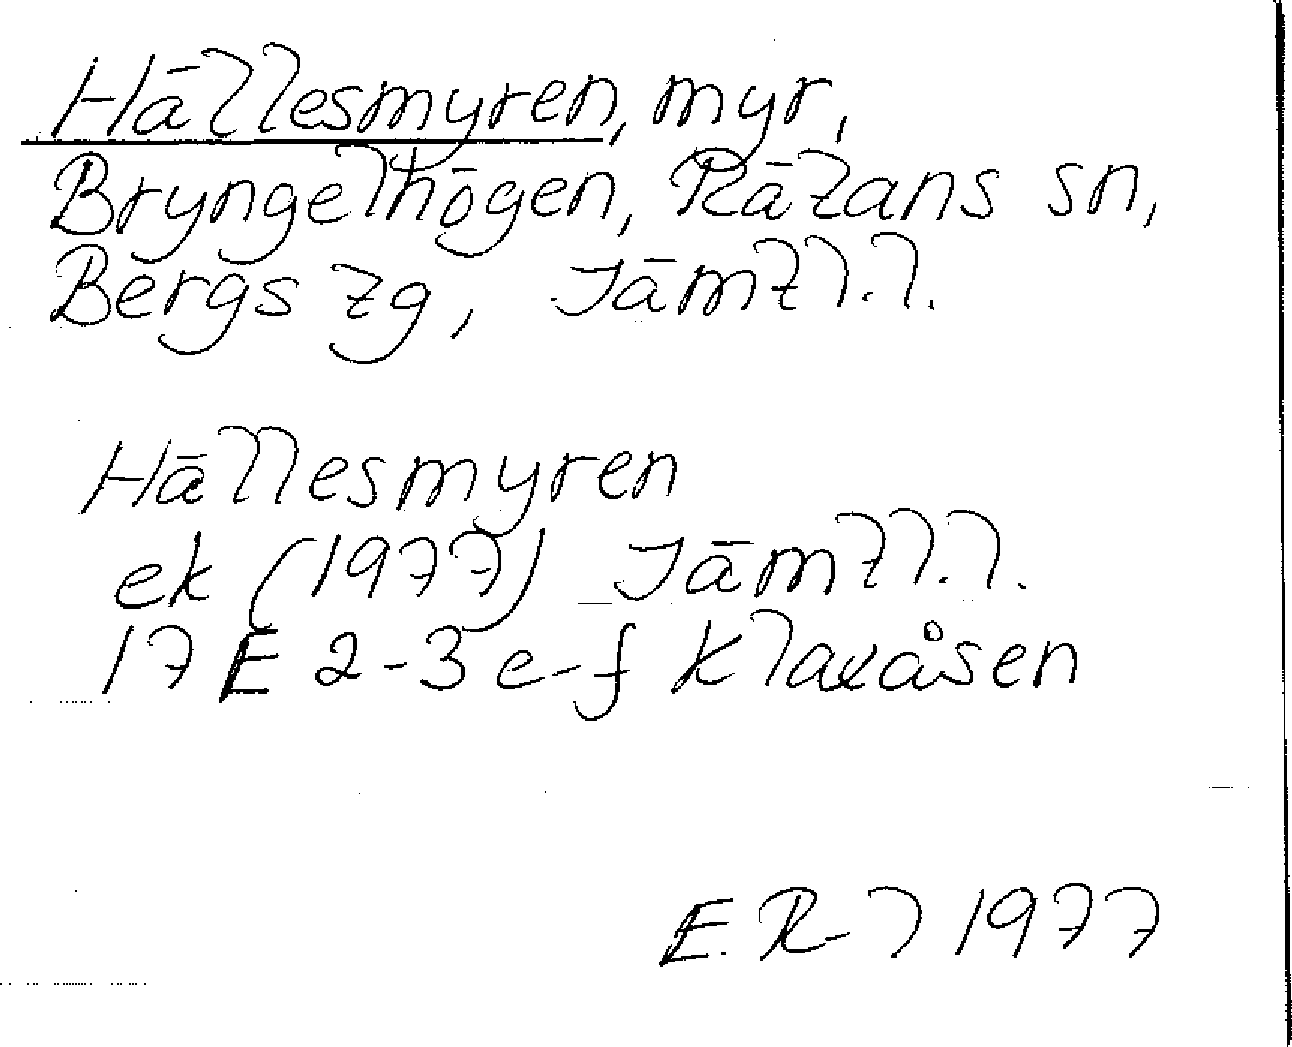 Hällesmyren, myr,
Bryngelhögen, Rätans sn,
Bergs tg, Jämtl.l.
Hällesmyren
ek (1977) Jämtl.l.
17 E 2-3 e-f Klaxåsen
E. R-l 1977